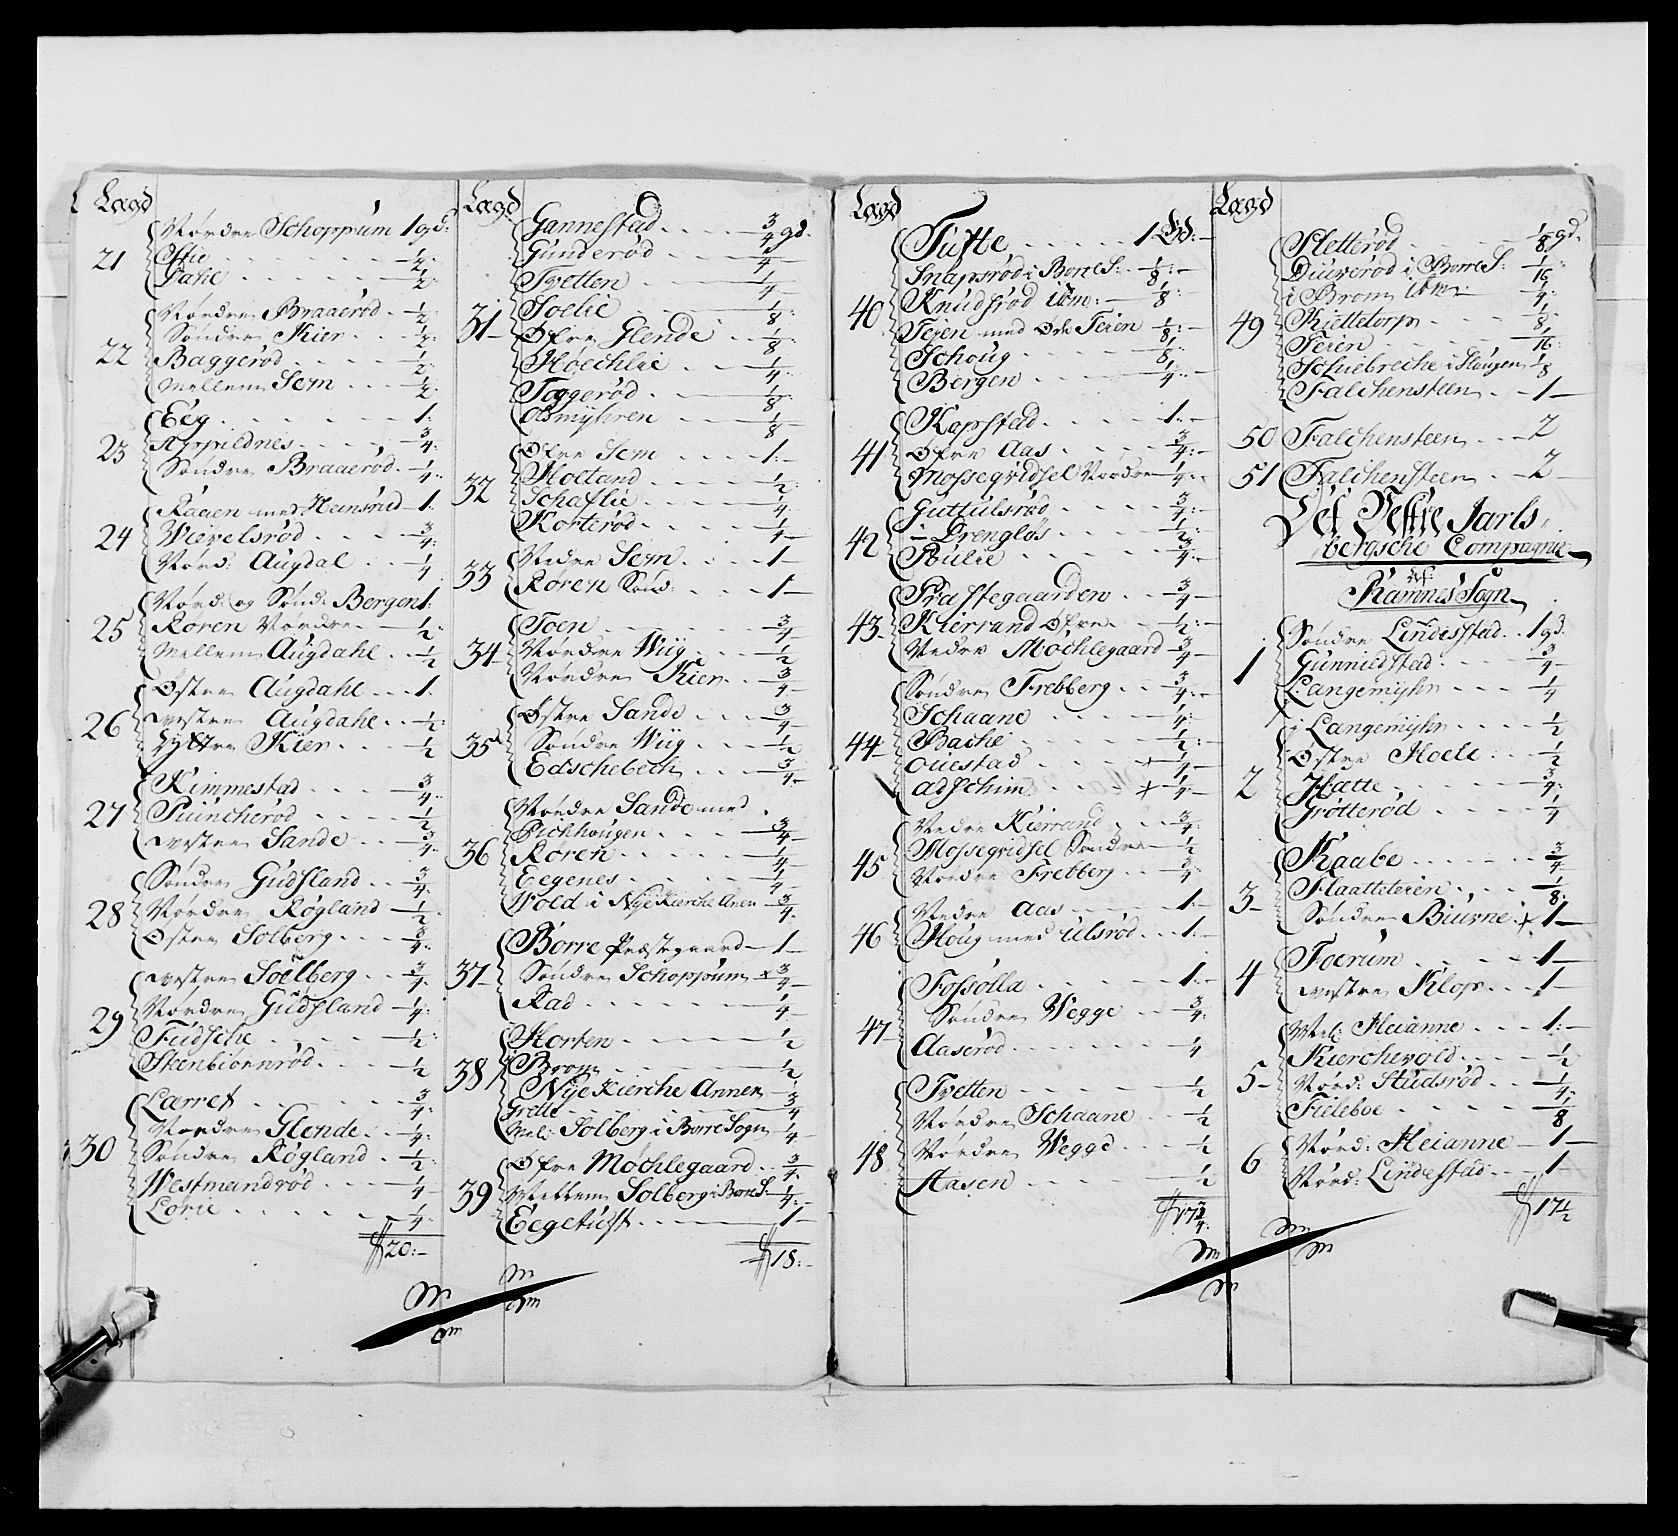 Lægd
Nordre Schoppum 1 gd:
21 Islie 1/2
Dahl 1/2:
Nordre Braaerød 1/2:
Søndre Kier 1/2:
22 Baggerød 1/2:
Mellem Sem 1/2:
Eeg 1:
23 Agpuldnes 3/4:
Søndre Braaerød 1/4:
Raaen med Heinsrud 1:
24 Wievelsrød 3/4:
Nord: Augdal 1/4
Nord: og Sønd: Bergen 1:
25 Røren Nordre 1/2:
Mellem Augdahl 1/2
Østre Augdahl 1:
26 westre Augdahl 1/2:
Yttre Kier 1/2
Kimmestad 3/4:
27 Puncherød 1/2
westre Sande 3/4:
Søndre Gudsland 3/4:
28 Nordre Røgland 1/2
Østre Solberg 3/4:
westre Soelberg 3/4:
Nordre Gudsland 1/4:
29 Fudsche 1/2:
Steenbiørnrød 1/2
Lærret 3/4:
Nordre Glende 1/4:
30 Søndre Røgland 1/2:
Westmandrød 1/4
Lorie 1/4:
20:
Lægd
Gannestad 3/4 gd.
Gunderød 1/4
Tvetten 1/4
Soelie 1/8:
31 Øfre Glende 1/8
Hoechlie 1/4:
Toggerød 1/8
Olsmyhren 1/8
Øfre Sem 1:
Holtand 1/2:
32 Schaflie 1/4:
Korterød 1/4:
Nedre Sem 1
33 Røren Sønd: 1
Toen 3/4
34 Nordre Wiig 1/2
Nordre Kier 3/4
Østre Sande 3/4
35 Søndre Wiig 1/2
Edschebech 3/4
Nordre Sande med
Pichhougen 3/4
36 Røren 1/4
Eegenes 1/4
Wold i Nye Kierche Anen 3/4
Borre Præstegaard 1
37 Søndre Schoppum x 3/4
Rad 1/4
Horten 1/2
38 Brom 1/2
Nye Kierche Annex 1/2
Grette 3/4
Mel: Solberg i Borre Sogn 1/4
Øfre Møchlegaard 3/4
39 Mellem Solberg i Borre S: 1/4:
Eegetuft 1
18:
Lægd
Tufte 1 Gd:
Snapsrød i Borre S: 1/8:
40 Knudsrød ibm: 1/8:
Teien med Øde Teien 1/8:
Schoug 1/8:
Bergen 1/4:
Kapstad 1:
41 Øfre Aas 3/4:
Mossegridsel Nordre 1/4:
Guttulsrød 3/4:
42 Drengløs 1/2:
Poulie 3/4
Præstegaarden 3/4
43 Kierrand Øfre 1/2:
Nedre Møchlegaard 3/4
Søndre Frebberg 3/4:
Schaane 1/4:
44 Bache 1/2:
Ouestad x 1/4
Adschim x 1/4
Nedre Kierrand 3/4:
45 Mossegridsel Søndre 1/2
Nordre Frebberg 3/4:
Nedre Aas 1:
46 Houg med Ulsrød 1:
Fossolla 1:
47 Søndre Wegge 3/4:
Aaserød 1/4
Tvetten 1/2
Nordre Schaane 1/2
48 Nordre Wegge 1/2
Aasen 1/2
17 3/4:
Lægd
Sletterød 1/8 gd.
Duuerød i Borre S: 1/16
i Brom ibm: 1/4:
49 Kiettetorp 1/8:
Teien 1/16:
Schiebreche i Slougen 1/8
Falchensteen 1
50 Falchensteen 2
51 Falchensteen 2
Det Vestre Jarls,
bergsche Compagnie
af
Ramnes Sogn
Søndre Lindisstad 1 gd.
1 Gunniedstad 3/4
Langemyhr 1/4
i Langemyhr 1/2
Østre Hoele 1/2
2 Hatte 3/4:
Grøtterød 1/4
Kaabe 3/4
3 Flaatteteien 1/8:
Søndre Biurne x 1
4 Foerum 1
westre Klop 1
Mel: Heianne 1:
Kierchevold 1/2
5 Nord: Studsrød 1/4:
Fieleboe 1/8
6 Nord: Heianne 1
Nord: Lindestad 1
17 1/2